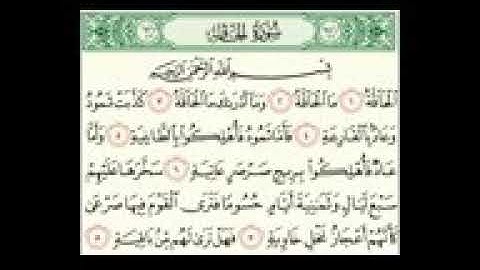 سُورَةُ الحَاقَّةِ
بِسْمِ اللَّهِ الرَّحْمَٰنِ الرَّحِيمِ
الْحَاقَّةُ ١ مَا الْحَاقَّةُ ٢ وَمَا أَدْرَاكَ مَا الْحَاقَّةُ ٣ كَذَّبَتْ ثَمُودُ
وَعَادٌ بِالْقَارِعَةِ ٤ فَأَمَّا ثَمُودُ فَأُهْلِكُوا بِالطَّاغِيَةِ ٥ وَأَمَّا
عَادٌ فَأُهْلِكُوا بِرِيحٍ صَرْصَرٍ عَاتِيَةٍ ٦ سَخَّرَهَا عَلَيْهِمْ
سَبْعَ لَيَالٍ وَثَمَانِيَةَ أَيَّامٍ حُسُومًا فَتَرَى الْقَوْمَ فِيهَا صَرْعَىٰ
كَأَنَّهُمْ أَعْجَازُ نَخْلٍ خَاوِيَةٍ ٧ فَهَلْ تَرَىٰ لَهُمْ مِنْ بَاقِيَةٍ ٨